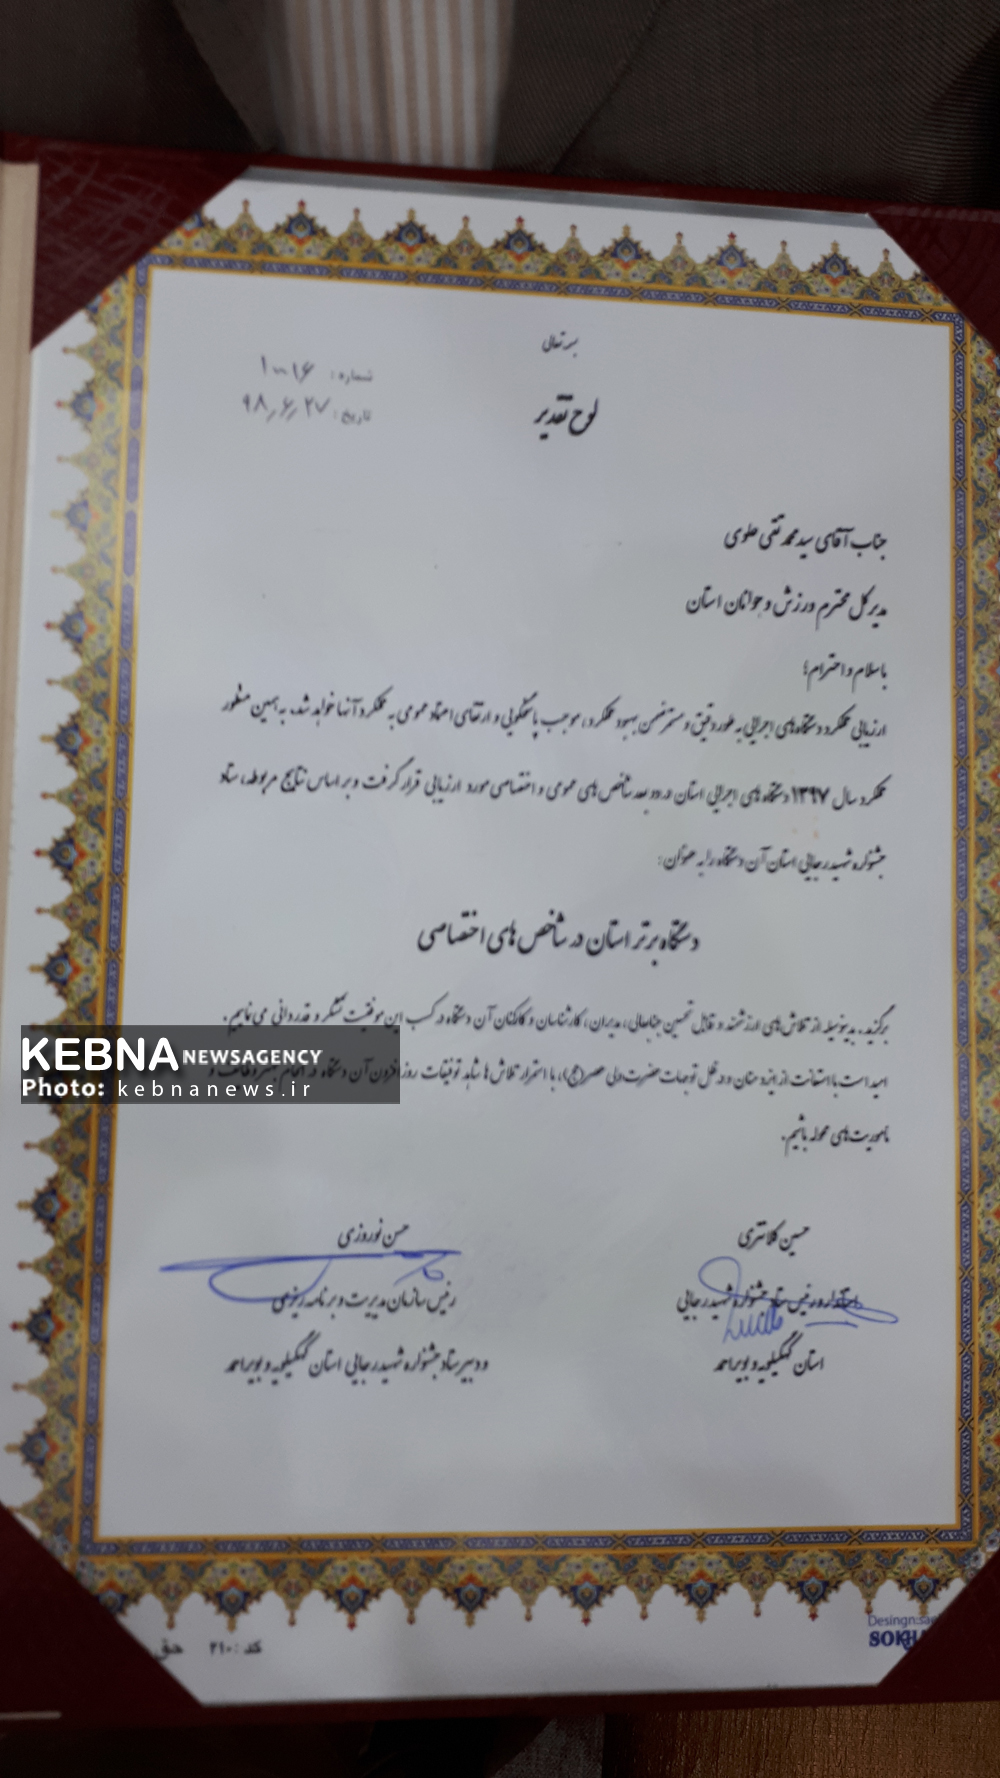 بسمه تعالی
شماره: ۱۰۰۱۶
تاریخ: ۹۸/۶/۲۷
لوح تقدیر
جناب آقای سید محمد تقی علوی
مدیر کل محترم ورزش و جوانان استان
با سلام و احترام؛
ارزیابی عملکرد دستگاه‌های اجرایی به طور دقیق و مستمر ضمن بهبود عملکرد، موجب پاسخگویی و ارتقای اعتماد عمومی به عملکرد آنها خواهد شد. به همین منظور
عملکرد سال ۱۳۹۷ دستگاه های اجرایی استان در دو بعد شاخص های عمومی و اختصاصی مورد ارزیابی قرار گرفت و بر اساس نتایج مربوطه، ستاد
جشنواره شهید رجایی استان آن دستگاه را به عنوان:
دستگاه برتر استان در شاخص های اختصاصی
برگزید. بدینوسیله از تلاش‌های ارزشمند و قابل تحسین جنابعالی، مدیران، کارشناسان و کارکنان آن دستگاه در کسب این موفقیت تشکر و قدردانی می نماییم.
امید است با استعانت از ایزد منان و در ظل توجهات حضرت ولی عصر (عج)، با استمرار تلاش ها شاهد توفیقات روز افزون آن دستگاه در انجام بهینه وظائف و
ماموریت‌های محوله باشیم.
KEBNA NEWSAGENCY
Photo: kebnanews.ir
حسین کلانتری
استاندار و رئیس ستاد جشنواره شهید رجایی
استان کهگیلویه و بویراحمد
حسن نوروزی
رئیس سازمان مدیریت و برنامه ریزی
و دبیر ستاد جشنواره شهید رجایی استان کهگیلویه و بویراحمد
کد: ۲۱۰ حق